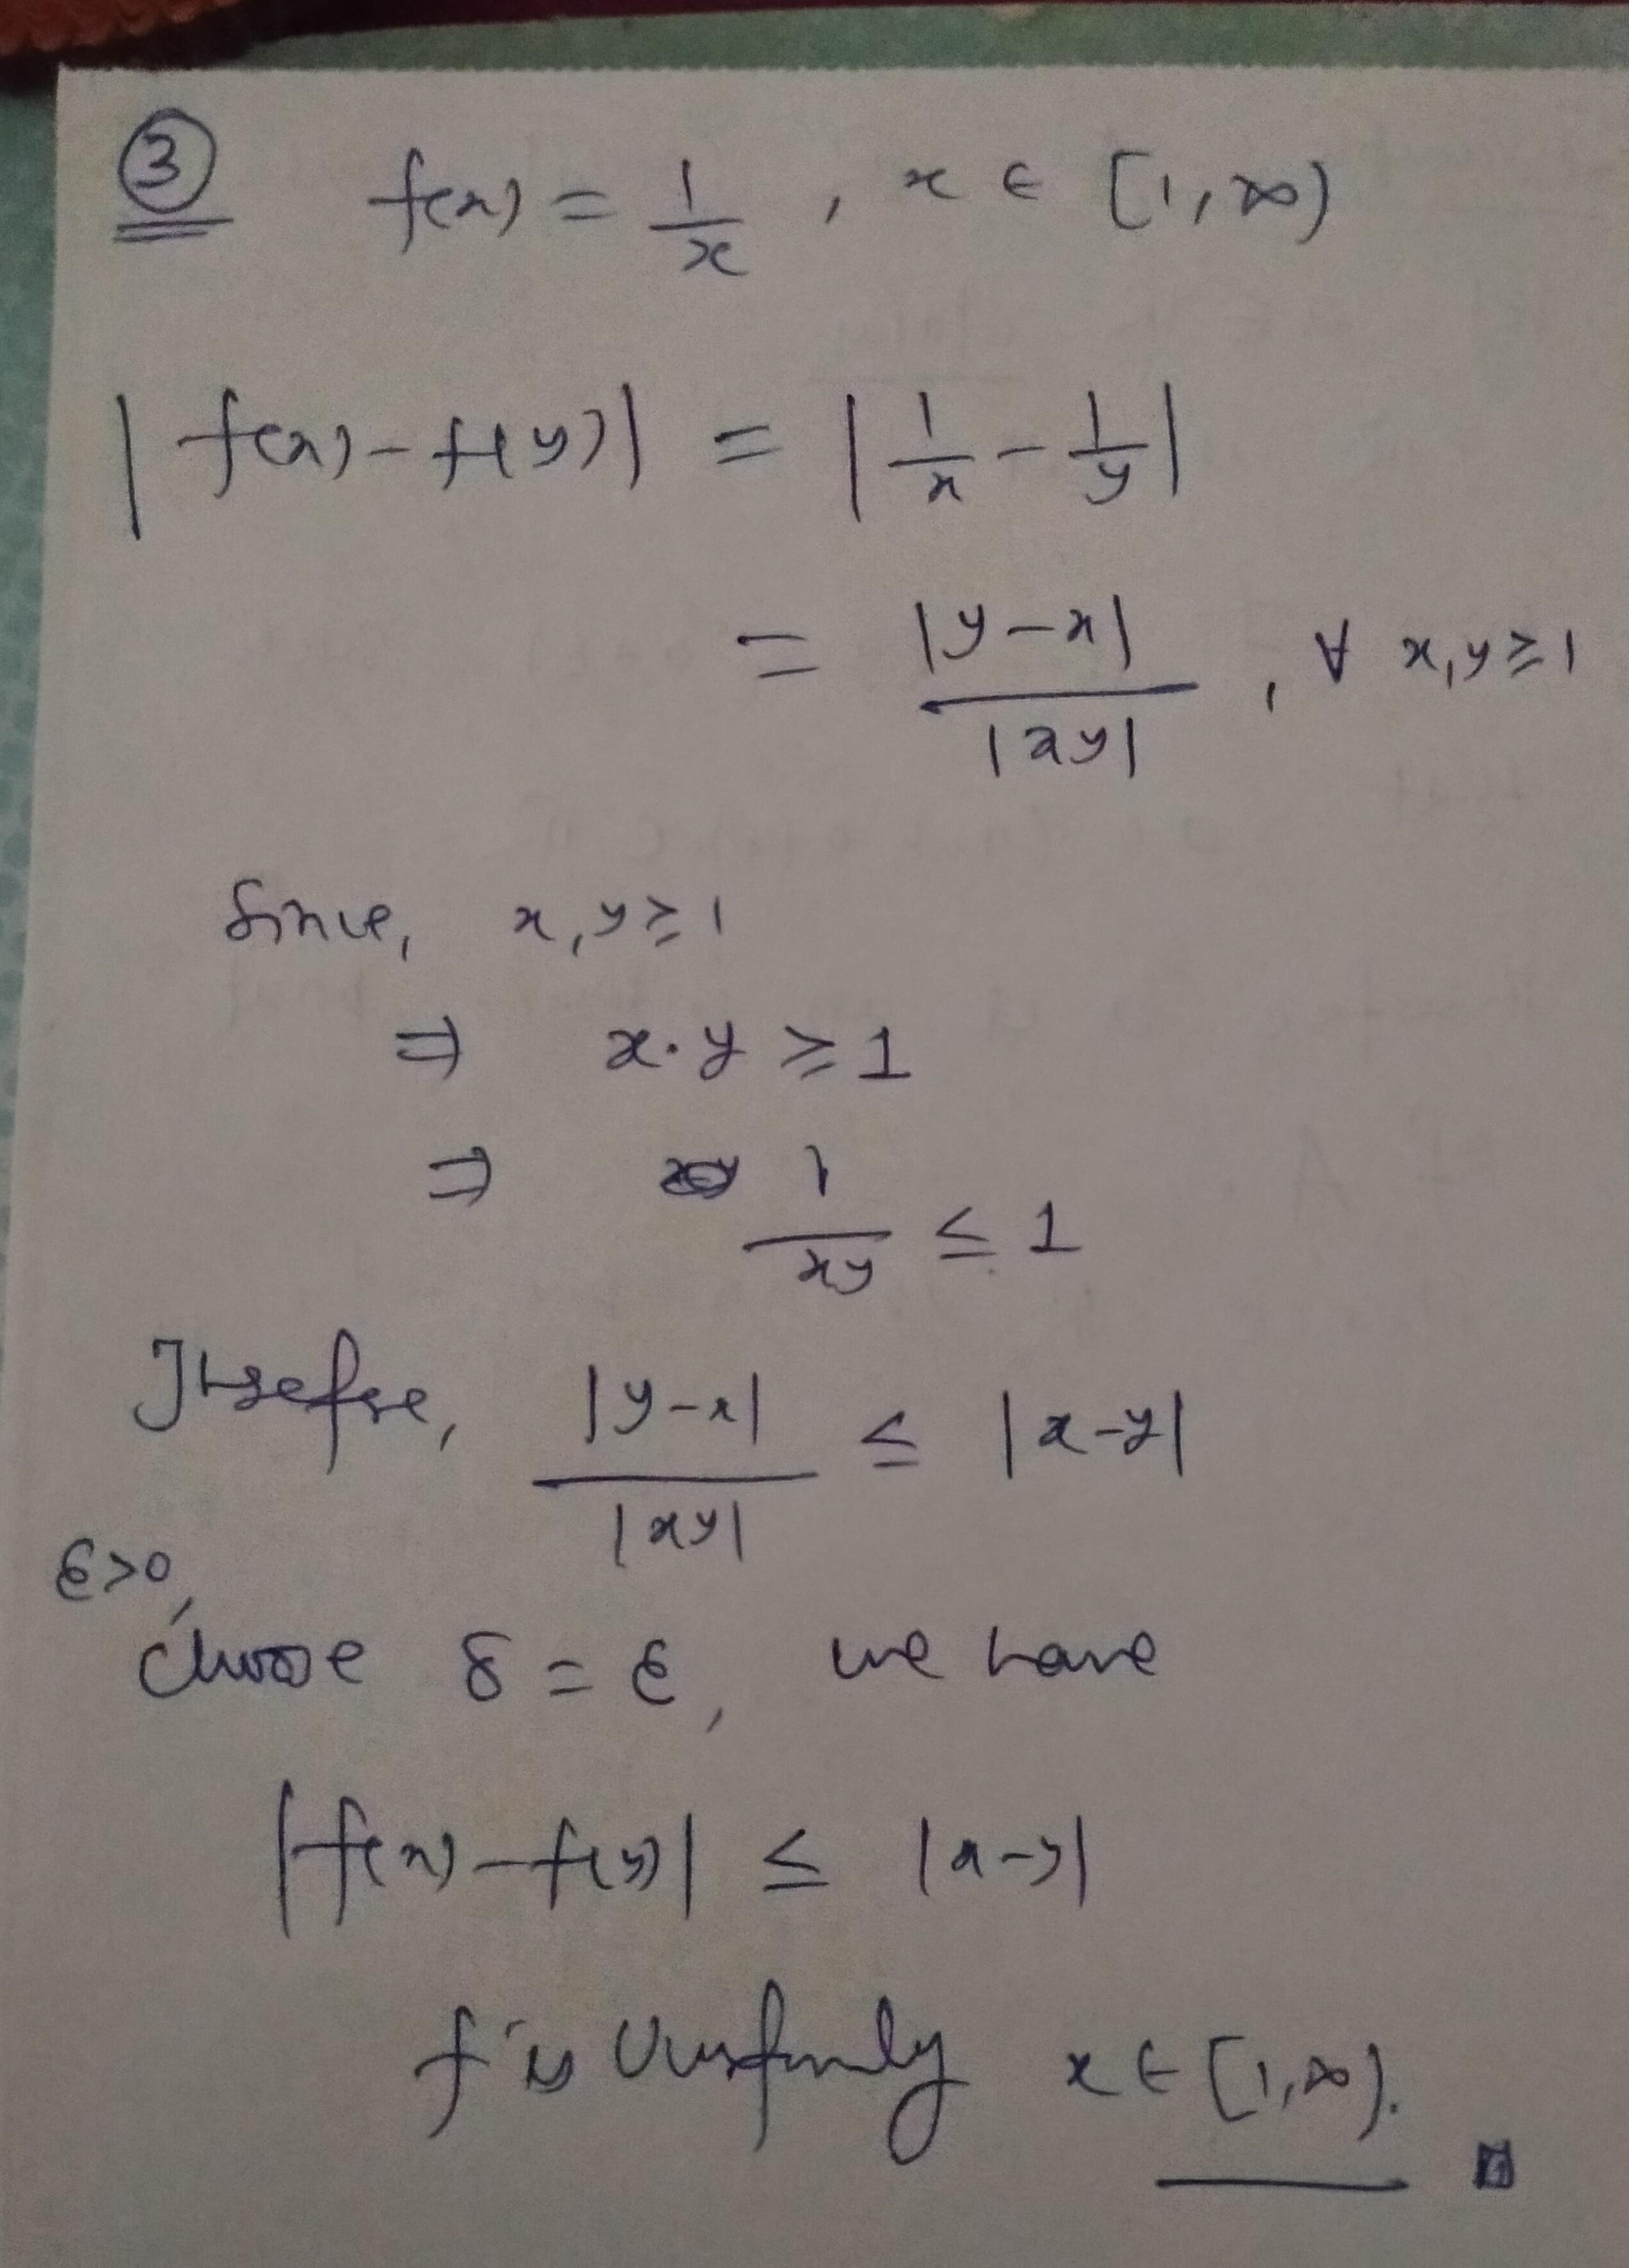 ③ f(x) = 1/x , x ∈ [1, ∞)
|f(x) - f(y)| = |1/x - 1/y|
= |y-x| / |xy| , ∀ x,y ≥ 1
Since, x,y ≥ 1
⇒ x·y ≥ 1
⇒ 1/xy ≤ 1
Therefore, |y-x| / |xy| ≤ |x-y|
ε>0,
choose δ = ε, we have
|f(x) - f(y)| ≤ |x-y|
f is Uniformly x ∈ [1,∞).